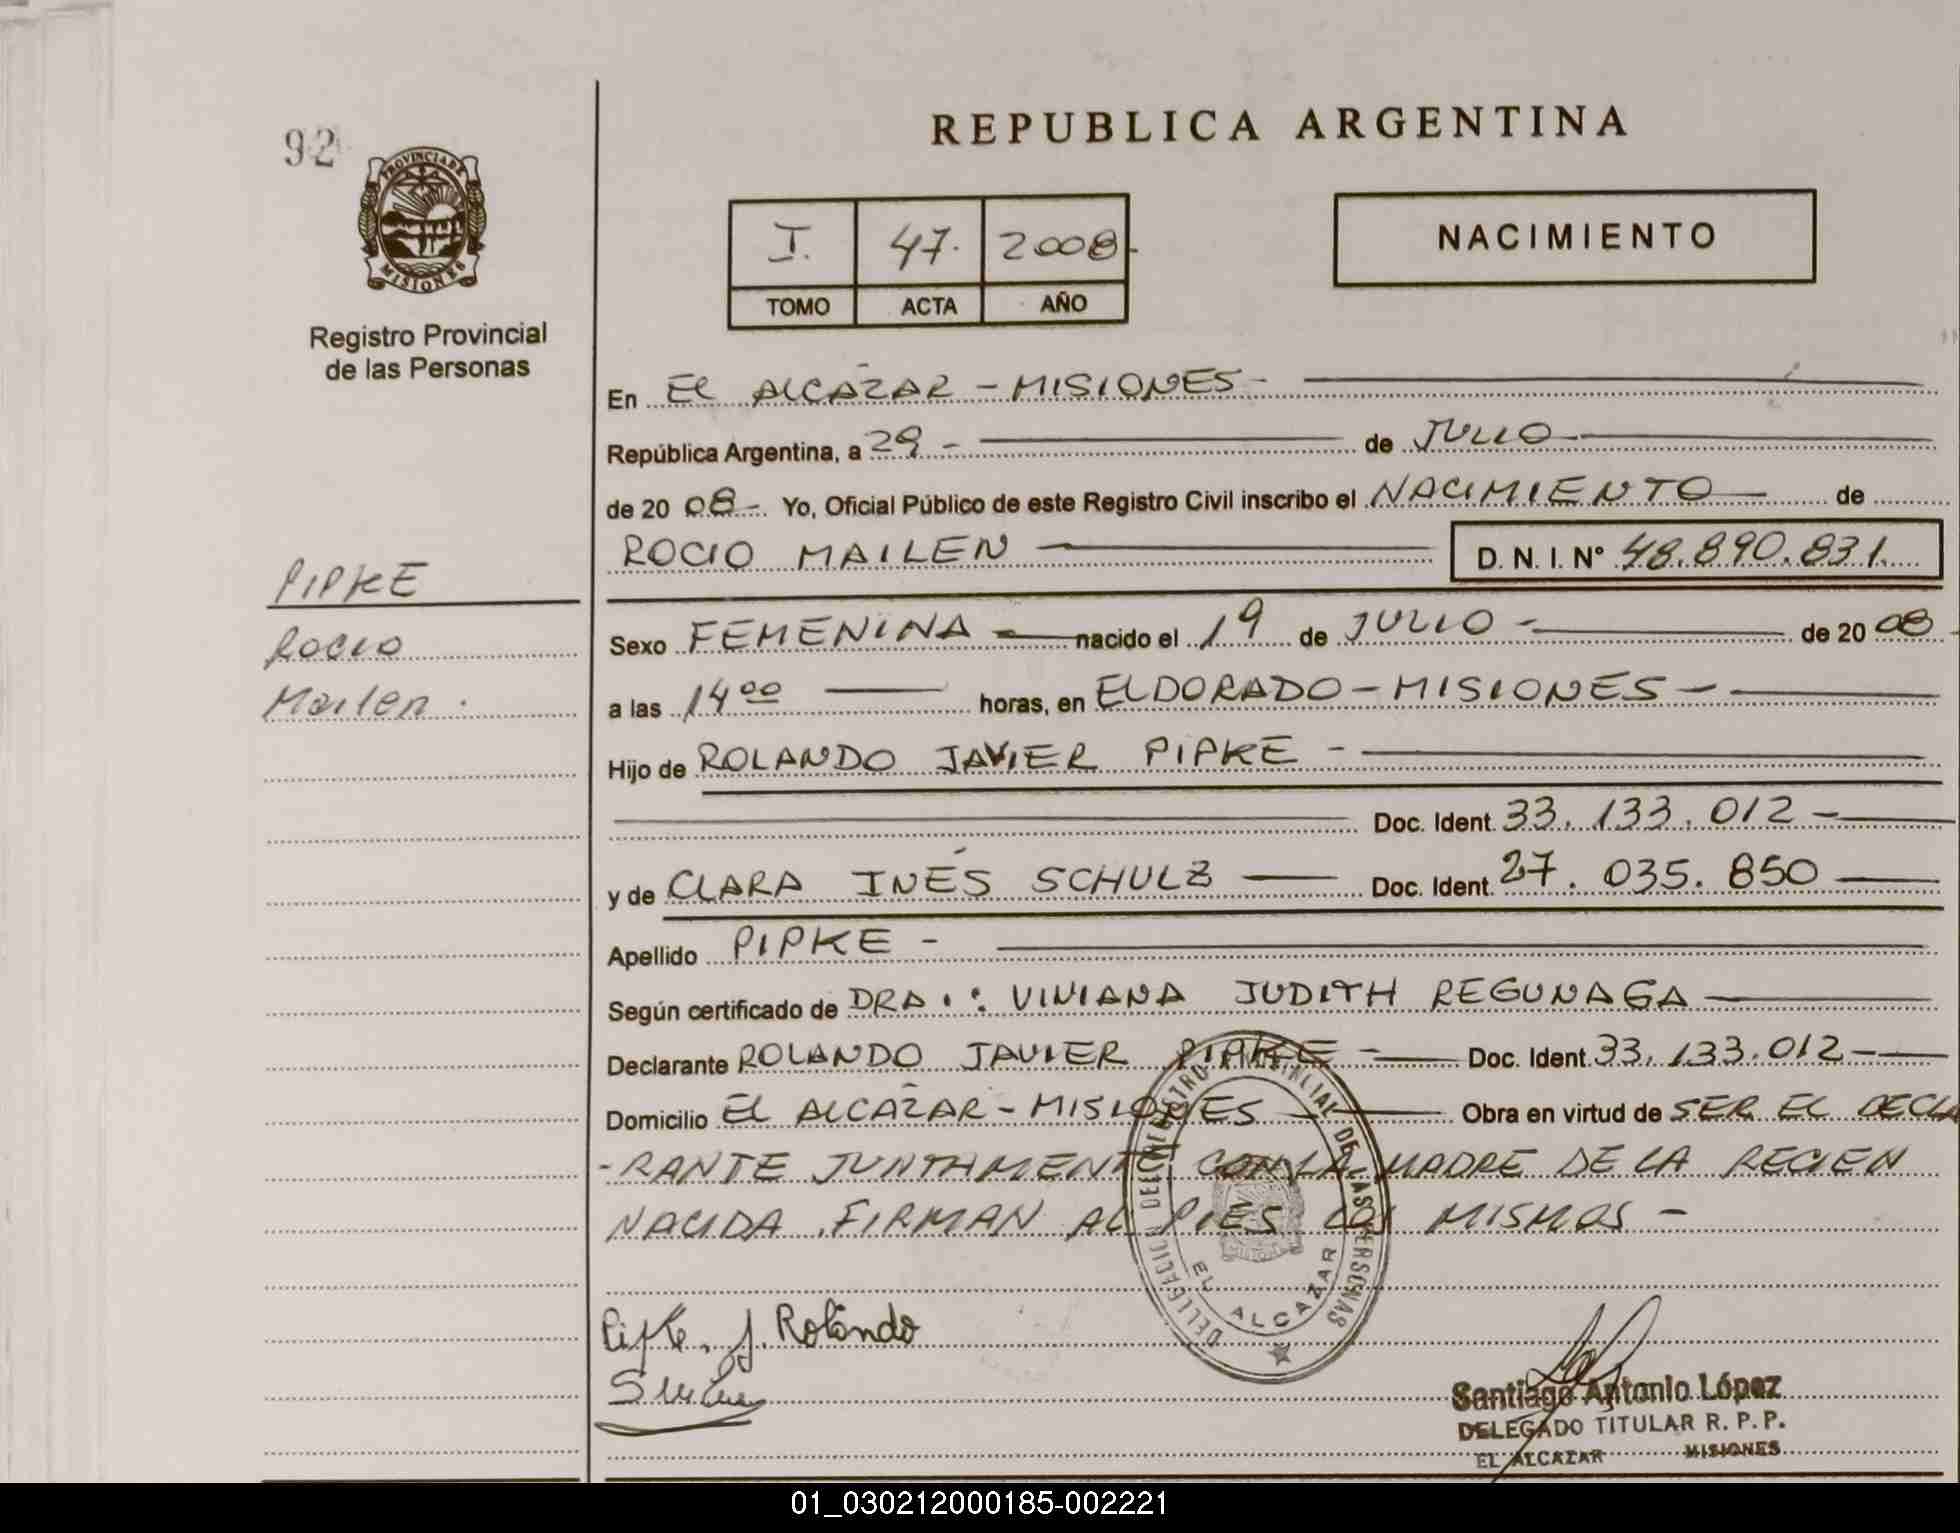 92
PROVINCIA DE
MISIONES
Registro Provincial
de las Personas
REPUBLICA ARGENTINA
I. 47. 2008-
TOMO ACTA AÑO
NACIMIENTO
En EL ALCAZAR - MISIONES -
República Argentina, a 29 - de JULIO -
de 20 08 - Yo, Oficial Público de este Registro Civil inscribo el NACIMIENTO de
ROCIO MAILEN D. N. I. N° 48.890.831.
PIPKE
Rocio
Mailen .
Sexo FEMENINA - nacido el 19 de JULIO - de 20 08 -
a las 14 00 horas, en ELDORADO - MISIONES -
Hijo de ROLANDO JAVIER PIPKE -
Doc. Ident. 33. 133. 012 -
y de CLARA INÉS SCHULZ Doc. Ident. 27. 035. 850
Apellido PIPKE -
Según certificado de DRA.: VIVIANA JUDITH REGUNAGA
Declarante ROLANDO JAVIER PIPKE - Doc. Ident. 33. 133. 012 -
Domicilio EL ALCAZAR - MISIONES Obra en virtud de SER EL DECLA
-RANTE JUNTAMENT CON LA MADRE DE LA RECIEN
NACIDA . FIRMAN AL PIES LOS MISMOS -
DELEGACION DEL REGISTRO PROVINCIAL DE LAS PERSONAS
EL ALCAZAR
Pipke. J. Rolando
Santiago Antonio López
DELEGADO TITULAR R. P. P.
EL ALCAZAR MISIONES
01_030212000185-002221